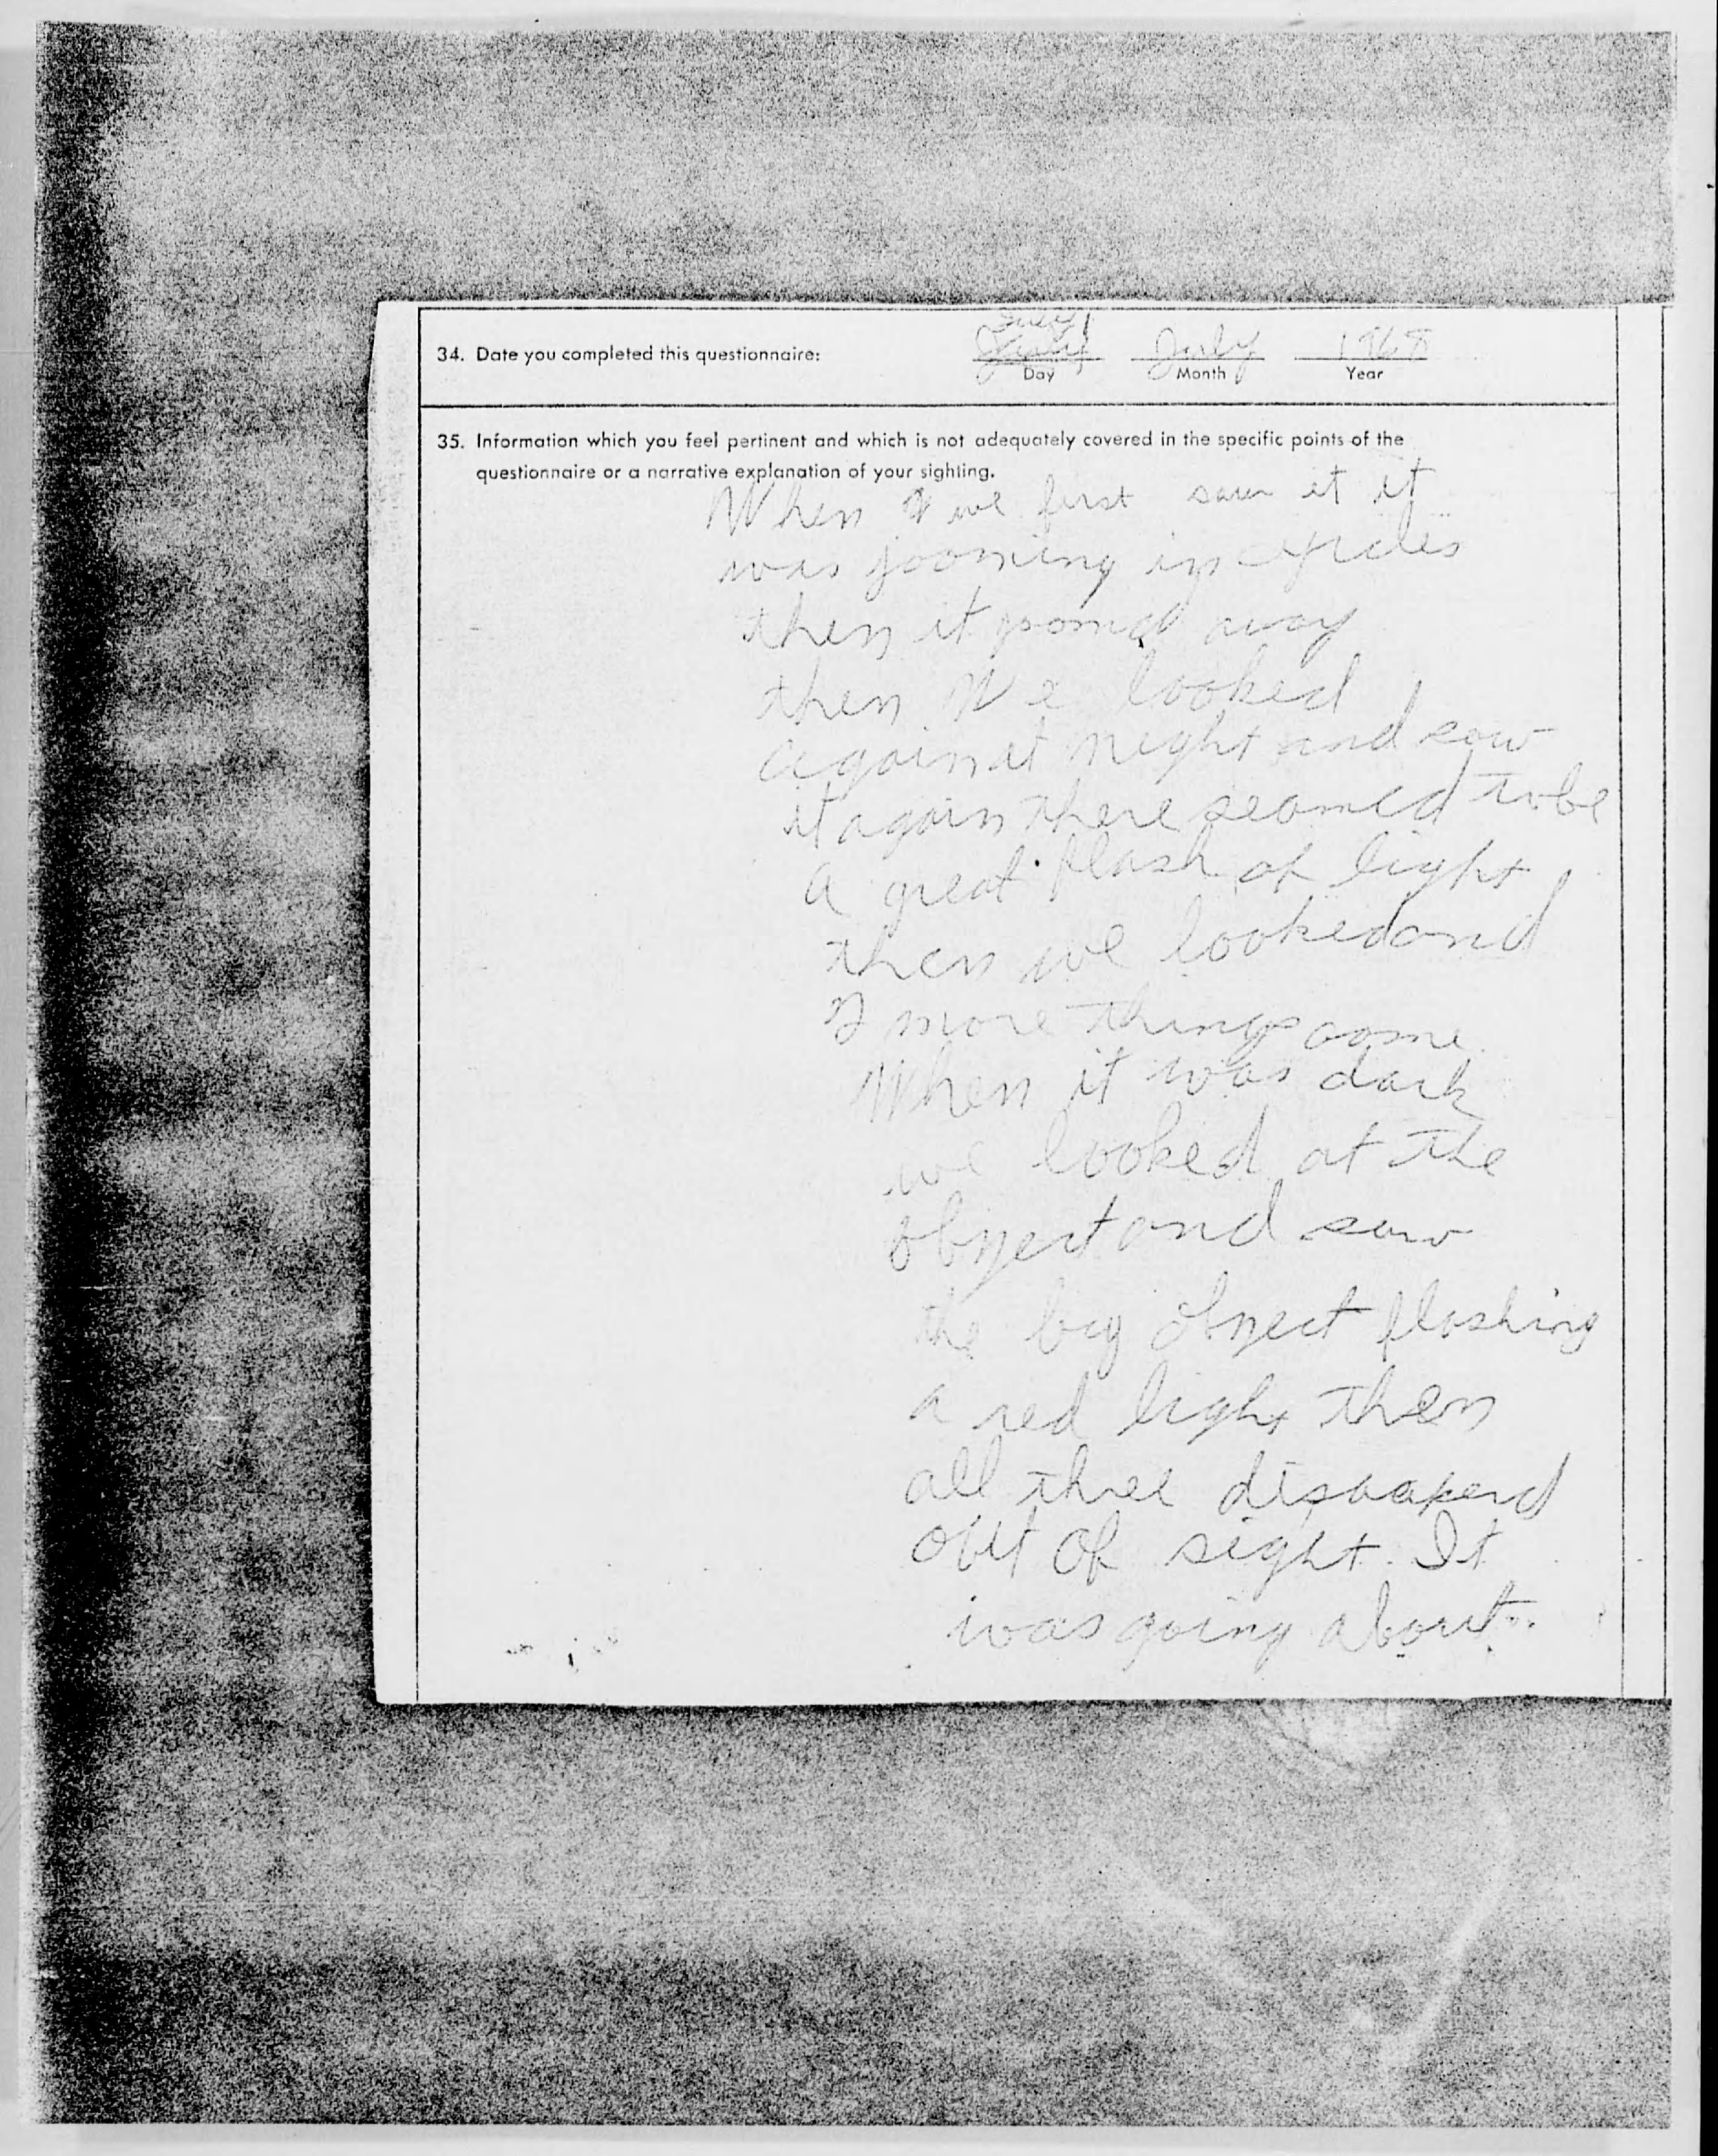 34. Date you completed this questionnaire: July 1968
Day Month Year
35. Information which you feel pertinent and which is not adequately covered in the specific points of the
questionnaire or a narrative explanation of your sighting.
When we first saw it it
was zooming in
then it away
then We looked
again at night and saw
it again there seamed to be
a great flash of light
then we looked and
2 more things come
When it was dark
we looked at the
object and saw
the big object flashing
a red light then
all three
out of sight. It
was going about